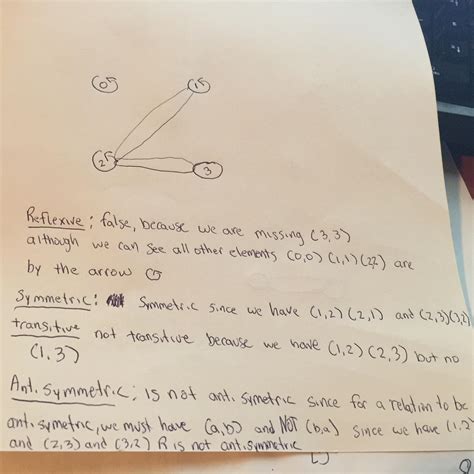 0
1
2
3
Reflexive; false, because we are missing (3,3)
although we can see all other elements (0,0) (1,1) (2,2) are
by the arrow
Symmetric: Smmetric since we have (1,2) (2,1) and (2,3)(3,2)
transitive not transitive because we have (1,2) (2,3) but no
(1,3)
Anti Symmetric; is not anti symetric since for a relation to be
anti symetric, we must have (a,b) and NOT (b,a) since we have (1,2)
and (2,3) and (3,2) R is not antisymmetric